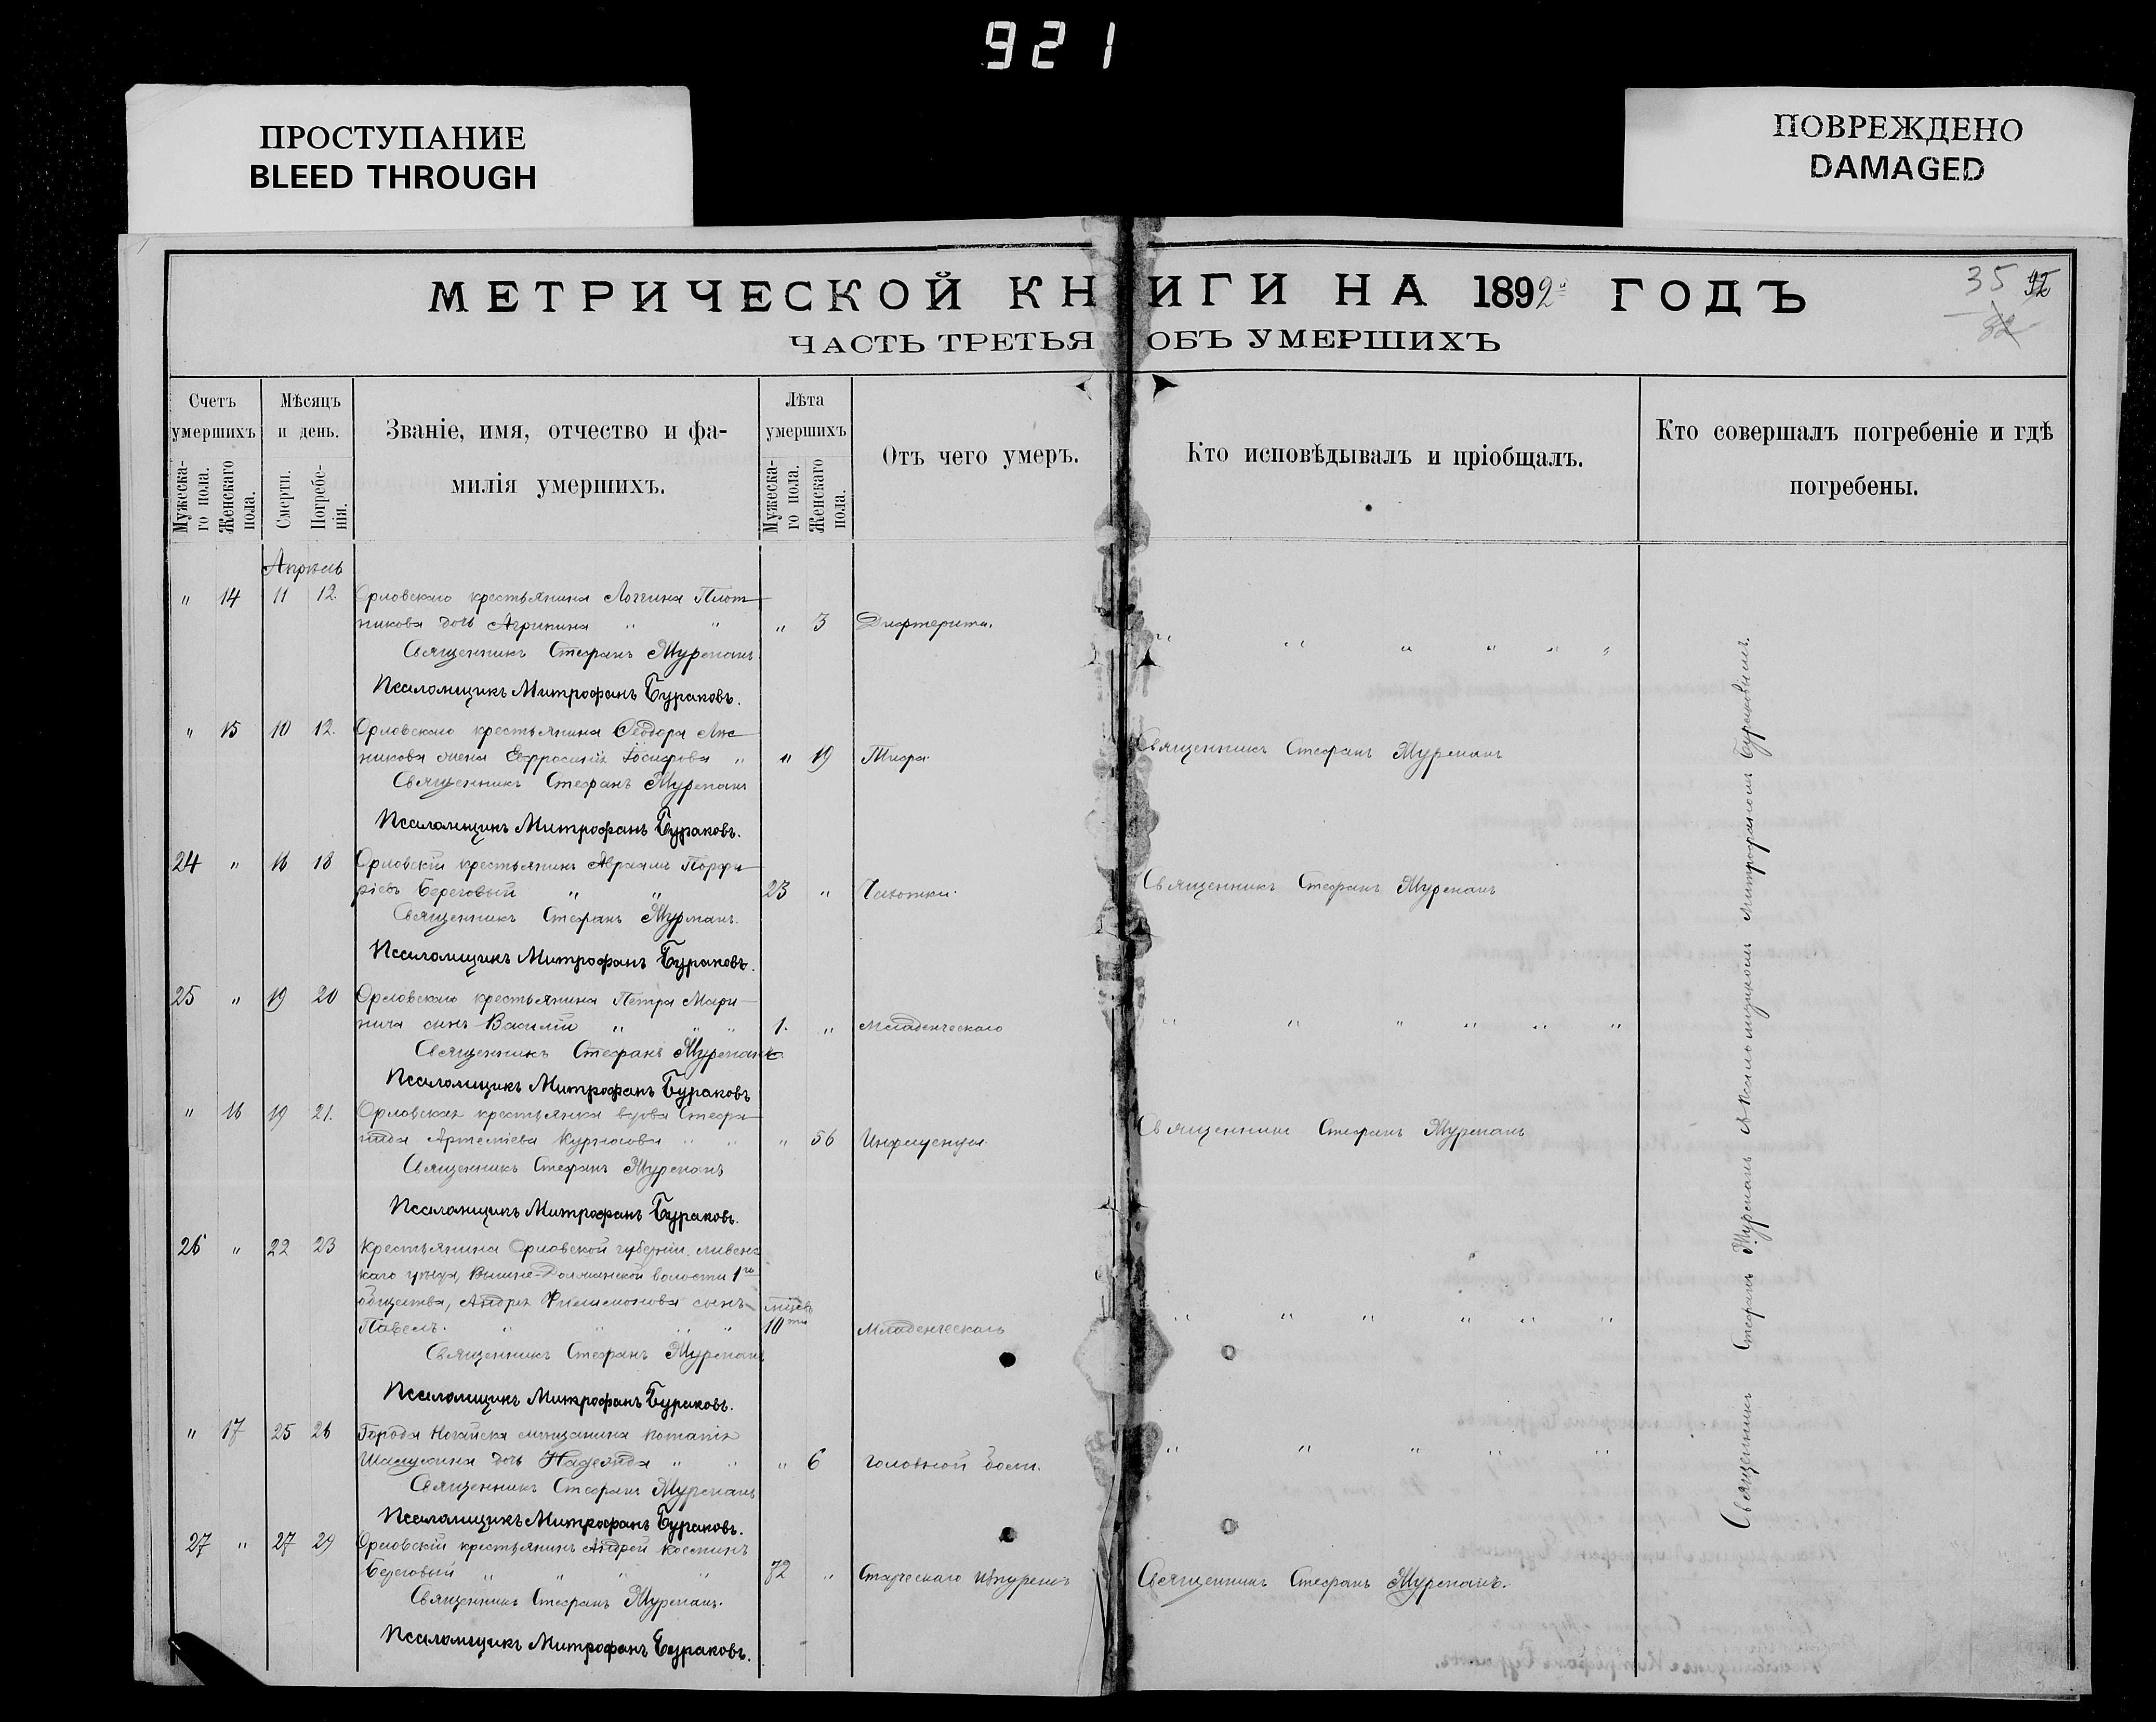 921
ПРОСТУПАНИЕ
BLEED THROUGH
ПОВРЕЖДЕНО
DAMAGED
МЕТРИЧЕСКОЙ КНИГИ НА 1892 ГОДЪ
35
ЧАСТЬ ТРЕТЬЯ ОБЪ УМЕРШИХЪ
Счетъ умершихъ
Мужеска-го пола.
Женскаго пола.
Мѣсяцъ и день.
Смерти.
Погребе-нія.
Званіе, имя, отчество и фа-
милія умершихъ.
Лѣта умершихъ
Мужеска-го пола.
Женскаго пола.
Отъ чего умеръ.
Кто исповѣдывалъ и пріобщалъ.
Кто совершалъ погребеніе и гдѣ
погребены.
Апрель
" 14 11 12. Орловскаго крестьянина Логгина Плот-
никова дочь Агрипина " " " 3 Дифтерита.
Священникъ Стефанъ Журенанъ
Псаломщикъ Митрофанъ Бураковъ.
" 15 10 12. Орловскаго крестьянина Ѳеодора
никова жена " " 19 Тифа. Священникъ Стефанъ Журенанъ
Священникъ Стефанъ Журенанъ
Псаломщикъ Митрофанъ Бураковъ.
24 " 16 18 Орловскій крестьянинъ Авраамъ Порфи-
ріевъ Береговый " " 23 " Чахотки. Священникъ Стефанъ Журенанъ
Священникъ Стефанъ
Псаломщикъ Митрофанъ Бураковъ.
25 " 19 20 Орловскаго крестьянина Петра Мари-
нича сынъ Василій " " " 1. " Младенческаго
Священникъ Стефанъ Журенанъ
Псаломщикъ Митрофанъ Бураковъ
" 16 19 21. Орловская крестьянка вдова Стефа-
нида Артеміева " " " 56 Священникъ Стефанъ Журенанъ
Священникъ Стефанъ Журенанъ
Псаломщикъ Митрофанъ Бураковъ.
26 " 22 23 Крестьянина Орловской губерніи, ливенс
каго уѣзда, волости 1го
общества, Андрея Филимонова сынъ
Павелъ. " " " " 10 Младенческаго
Священникъ Стефанъ Журенанъ
Псаломщикъ Митрофанъ Бураковъ.
" 17 25 26 Города Ногайска мѣщанина
дочь Надежда " " " 6 головной боли.
Священникъ Стефанъ Журенанъ
Псаломщикъ Митрофанъ Бураковъ.
27 " 27 29 Орловскій крестьянинъ Андрей Косминъ
Береговый " " " " 72 " Старческаго Священникъ Стефанъ Журенанъ.
Священникъ Стефанъ Журенанъ.
Псаломщикъ Митрофанъ Бураковъ.
Священникъ Стефанъ Журенанъ съ Псаломщикомъ Митрофаномъ Бураковымъ.